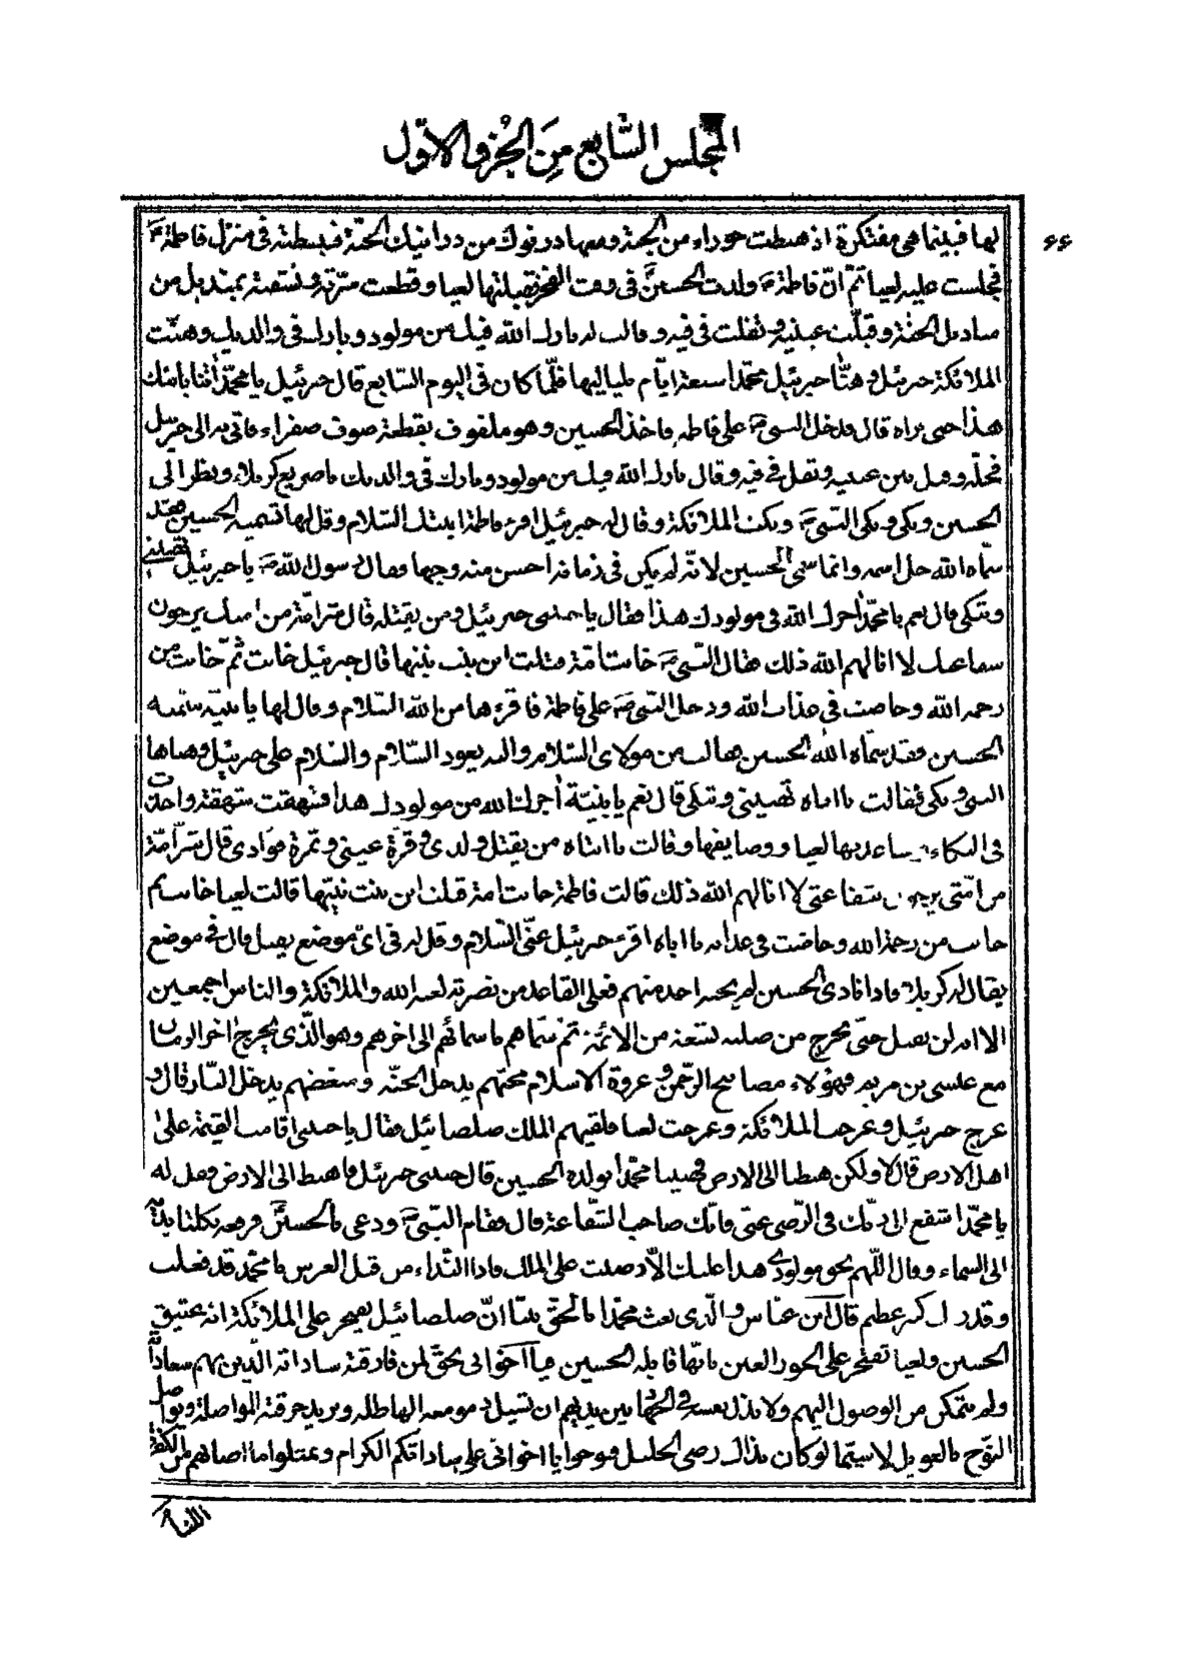 المجلس السابع من الجزء الاول
٦٦
لها فبينما هى مفتكرة اذ هبطت حوراء من الجنة ومعها درنوك من درانيك الجنّة فبسطته فى منزل فاطمة ع
فجلست عليه لعيا ثمّ انّ فاطمة ع ولدت الحسين ع فى وقت الفجر فقبلتها لعيا وقطعت سرّته ونشفته بمنديل من
مناديل الجنّة وقبّلت عينيه وتفلت فى فيه وقالت له بارك الله فيك من مولود وبارك فى والديك وهنّئت
الملائكة جبرئيل وهنّأ جبرئيل محمّدا سبعة ايّام بلياليها فلمّا كان فى اليوم السّابع قال جبرئيل يا محمّد أتنا بابنك
هذا حتى نراه قال فدخل النبى ص على فاطمة فاخذ الحسين وهو ملفوف بقطعة صوف صفراء فاتى به الى جبرئيل
فحلّه وقبل بين عينيه وتفل فى فيه وقال بارك الله فيك من مولود وبارك فى والديك يا صريع كربلاء ونظر الى
الحسين وبكى وبكى النبىّ ص وبكت الملائكة وقال له جبرئيل اقرء فاطمة ابنتك السّلام وقل لها تسميه الحسين فقد
سمّاه الله جل اسمه وانما سمّى الحسين لانّه لم يكن فى زمانه أحسن منه وجها فقال رسول الله ص يا جبرئيل تهنينى
وتبكى قال نعم يا محمّد أجرك الله فى مولودك هذا فقال يا حبيبى جبرئيل ومن يقتله قال شرامّة من امتك يرجون
شفاعتك لا انالهم الله ذلك فقال النّبىّ ص خابت امّة قتلت ابن بنت نبيّها قال جبرئيل خابت ثمّ خابت من
رحمة الله وخاضت فى عذاب الله ودخل النبى ص على فاطمة فاقرءها من الله السّلام وقال لها يا بنيّة سمّيه
الحسين فقد سمّاه الله الحسين فقالت من مولاى السّلام واليه يعود السّلام والسّلام على جبرئيل وهنّاها
النبى وبكى فقالت يا ابتاه تهنينى وتبكى قال نعم يا بنيّة أجرك الله من مولودك هذا فشهقت شهقة واحدة
فى البكاء ساعدتها لعيا ووصايفها وقالت يا ابتاه من يقتل ولدى وقرة عينى وثمرة فؤادى قال شرّ امّة
من امّتى يرجون شفاعتى لا انالهم الله ذلك قالت فاطمة خابت امة قتلت ابن بنت نبيّها قالت لعيا خابت ثم
خابت من رحمة الله وخاضت فى عذابه يا اباه اقرء جبرئيل عنّى السّلام وقل له فى اىّ موضع يقتل قال فى موضع
يقال له كربلا فاذا نادى الحسين لم يجبه احد منهم فعلى القاعد من نصرته لعنة الله والملائكة والناس اجمعين
الا انه لن يقتل حتّى يخرج من صلبه تسعة من الائمّة ثم سمّاهم باسمائهم الى اخرهم وهو الّذى يخرج اخر الزمان
مع عيسى بن مريم فهؤلاء مصابيح الرّحمن وعروة الاسلام محبّهم يدخل الجنّة ومبغضهم يدخل النّار قال و
عرج جبرئيل وعرجت الملائكة وعرجت لعيا فلقيهم الملك صلصائيل فقال يا حبيبى اقامت القيمة على
اهل الارض قال لا ولكن هبطنا الى الارض فهنينا محمّدا بولده الحسين قال حبيبى جبرئيل فاهبط الى الارض فقل له
يا محمّد اشفع الى ربّك فى الرّضى عنّى فانّك صاحب الشّفاعة قال فقام النّبىّ ص ودعى بالحسين ع فرفعه بكلتا يديه
الى السماء وقال اللّهم بحق مولودى هذا عليك الّا رضيت على الملك فاذا النّداء من قبل العرش يا محمّد قد فعلت
وقدرك كبير عظيم قال ابن عبّاس والّذى بعث محمّدا بالحقّ نبيّا انّ صلصائيل يفخر على الملائكة انه عتيق
الحسين ولعيا تفتخر على الحور العين بانّها قابلة الحسين فيا اخوانى يحقّ لمن فارقته ساداته الّذين بهم سعاداته
ولم يتمكن من الوصول اليهم ولا بذل نفسه فى الجهاد بين يديهم ان تسيل دموعه الهاطلة ويزيد حرقته المواصلة ويواصل
النّوح بالعويل لا سيّما لو كان بذلك رضى الجليل فنوحوا يا اخوانى على ساداتكم الكرام وتمثلوا ما اصابهم من الكفرة
اللئام